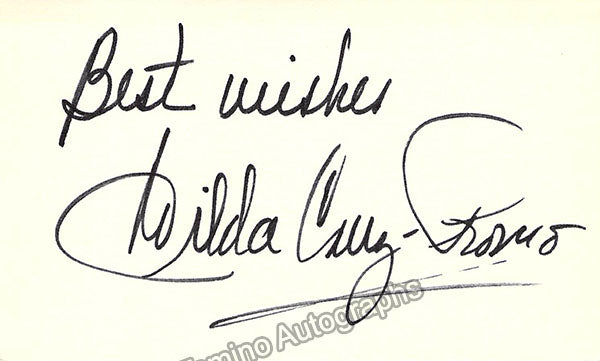 Best wishes
Gilda Cruz-Romo
Tamino Autographs